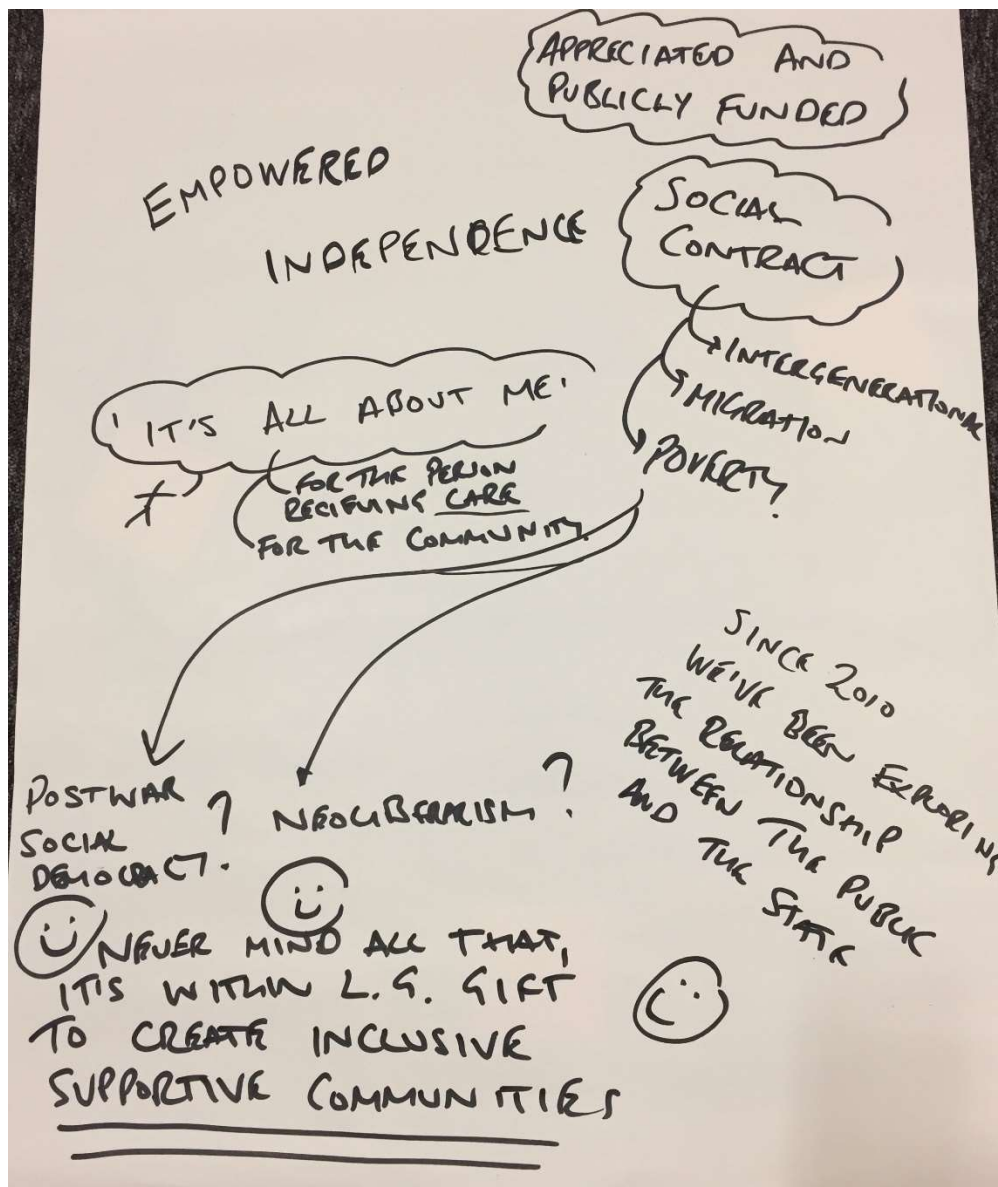 APPRECIATED AND
PUBLICLY FUNDED
EMPOWERED
INDEPENDENCE
SOCIAL
CONTRACT
INTERGENERATIONAL
MIGRATION
POVERTY
'IT'S ALL ABOUT ME'
FOR THE PERSON
RECIEVING CARE
FOR THE COMMUNITY
SINCE 2010
WE'VE BEEN EXPLORING
THE RELATIONSHIP
BETWEEN THE PUBLIC
AND THE STATE
POSTWAR
SOCIAL
DEMOCRACY?
NEOLIBERALISM?
NEVER MIND ALL THAT,
IT'S WITHIN L.G. GIFT
TO CREATE INCLUSIVE
SUPPORTIVE COMMUNITIES